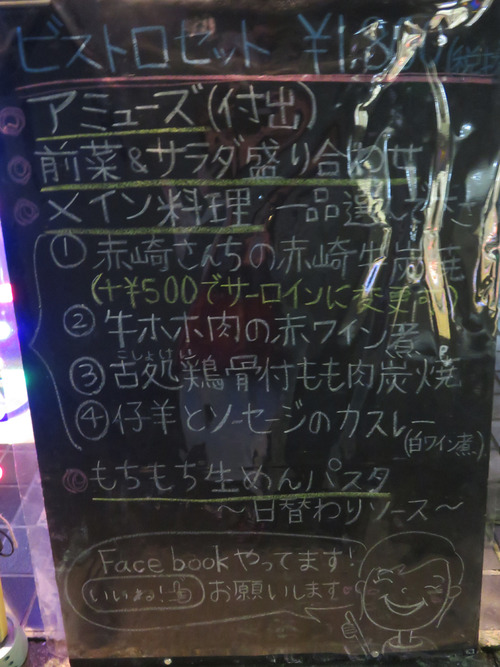 ビストロセット ¥1,8
アミューズ(付出)
前菜&サラダ盛り合わせ
メイン料理 一品選んで下さ
① 赤崎さんちの赤崎牛炭焼
(+¥500でサーロインに変更可)
② 牛ホホ肉の赤ワイン煮
こしょけい
③ 古処鶏骨付もも肉炭焼
④ 仔羊とソーセージのカスレー
(白ワイン煮)
もちもち生めんパスタ
〜日替わりソース〜
Facebookやってます!
いいね! お願いします